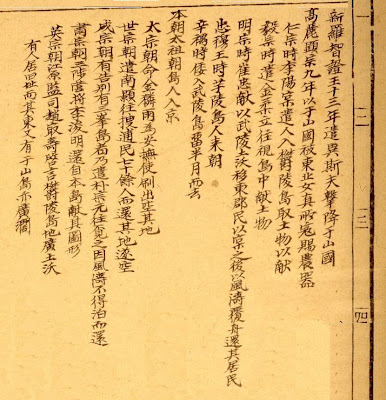 新羅智證王十三年遣異斯夫擊降于山國
高麗顯宗九年以于山國被東北女真所寇賜農器
仁宗時李陽實遣人入欝陵島取土物以献
毅宗時遣金柔立往視島中献土物
明宗時崔忠献以武陵土沃移東郡民以實之後以風濤覆舟還其居民
忠穆王時芋陵島人来朝
辛禑時倭入武陵島留半月而去
本朝太祖朝島人入京
太宗朝命金麟雨為安撫使刷出空其地
世宗朝遣南顥往搜逋民七十餘人而還其地遂空
成宗朝有告別有三峯島者乃遣朴宗元往覓之因風濤不得泊而還
肅宗朝三陟營將李浚明還自本島献其圖形
英宗朝江原監司趙取壽啓言欝陵島地廣土沃
有人居旧址而其東又有于山島亦廣濶
一
二
三
四